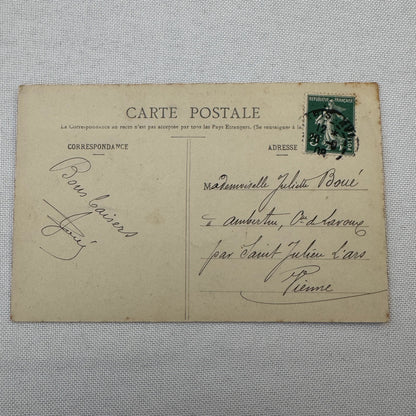 CARTE POSTALE
La Correspondance au recto n'est pas acceptée par tous les Pays Etrangers. (Se renseigner à la
CORRESPONDANCE
ADRESSE
REPUBLIQUE FRANÇAISE
Bons baisers
Mademoiselle Juliette Boué
à Ambertin, Cne de Lavoux
par Saint Julien L'ars
Vienne